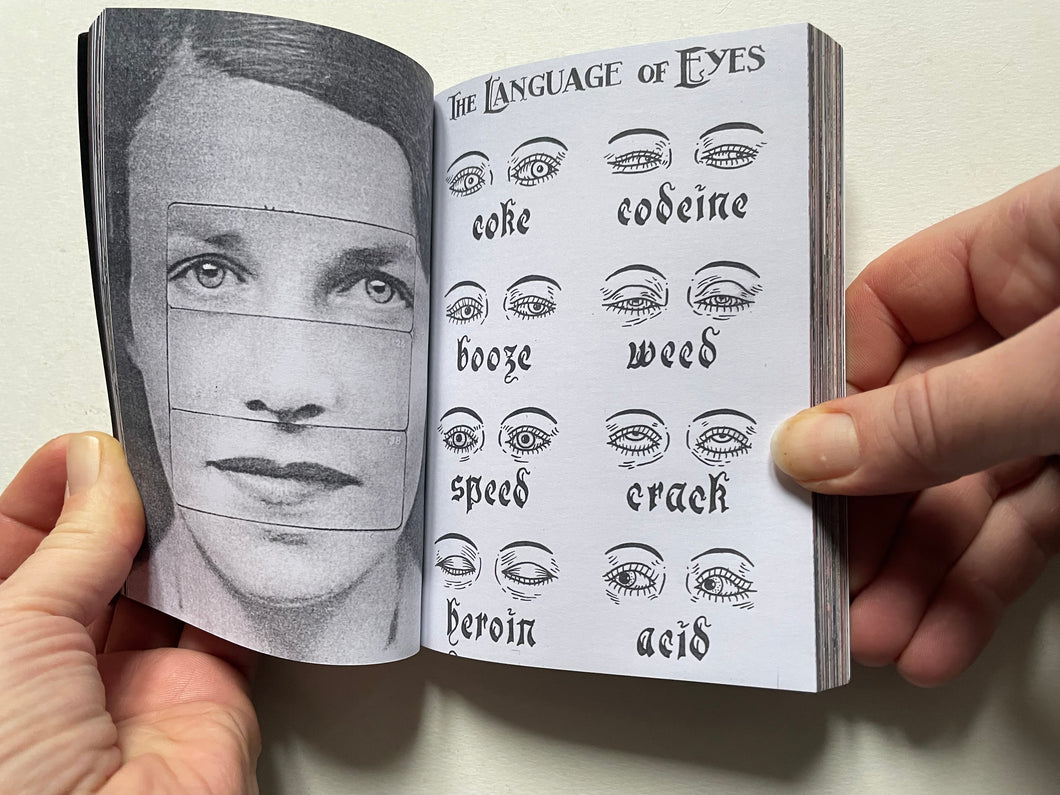 THE LANGUAGE OF EYES
coke codeine
booze weed
speed crack
heroin acid